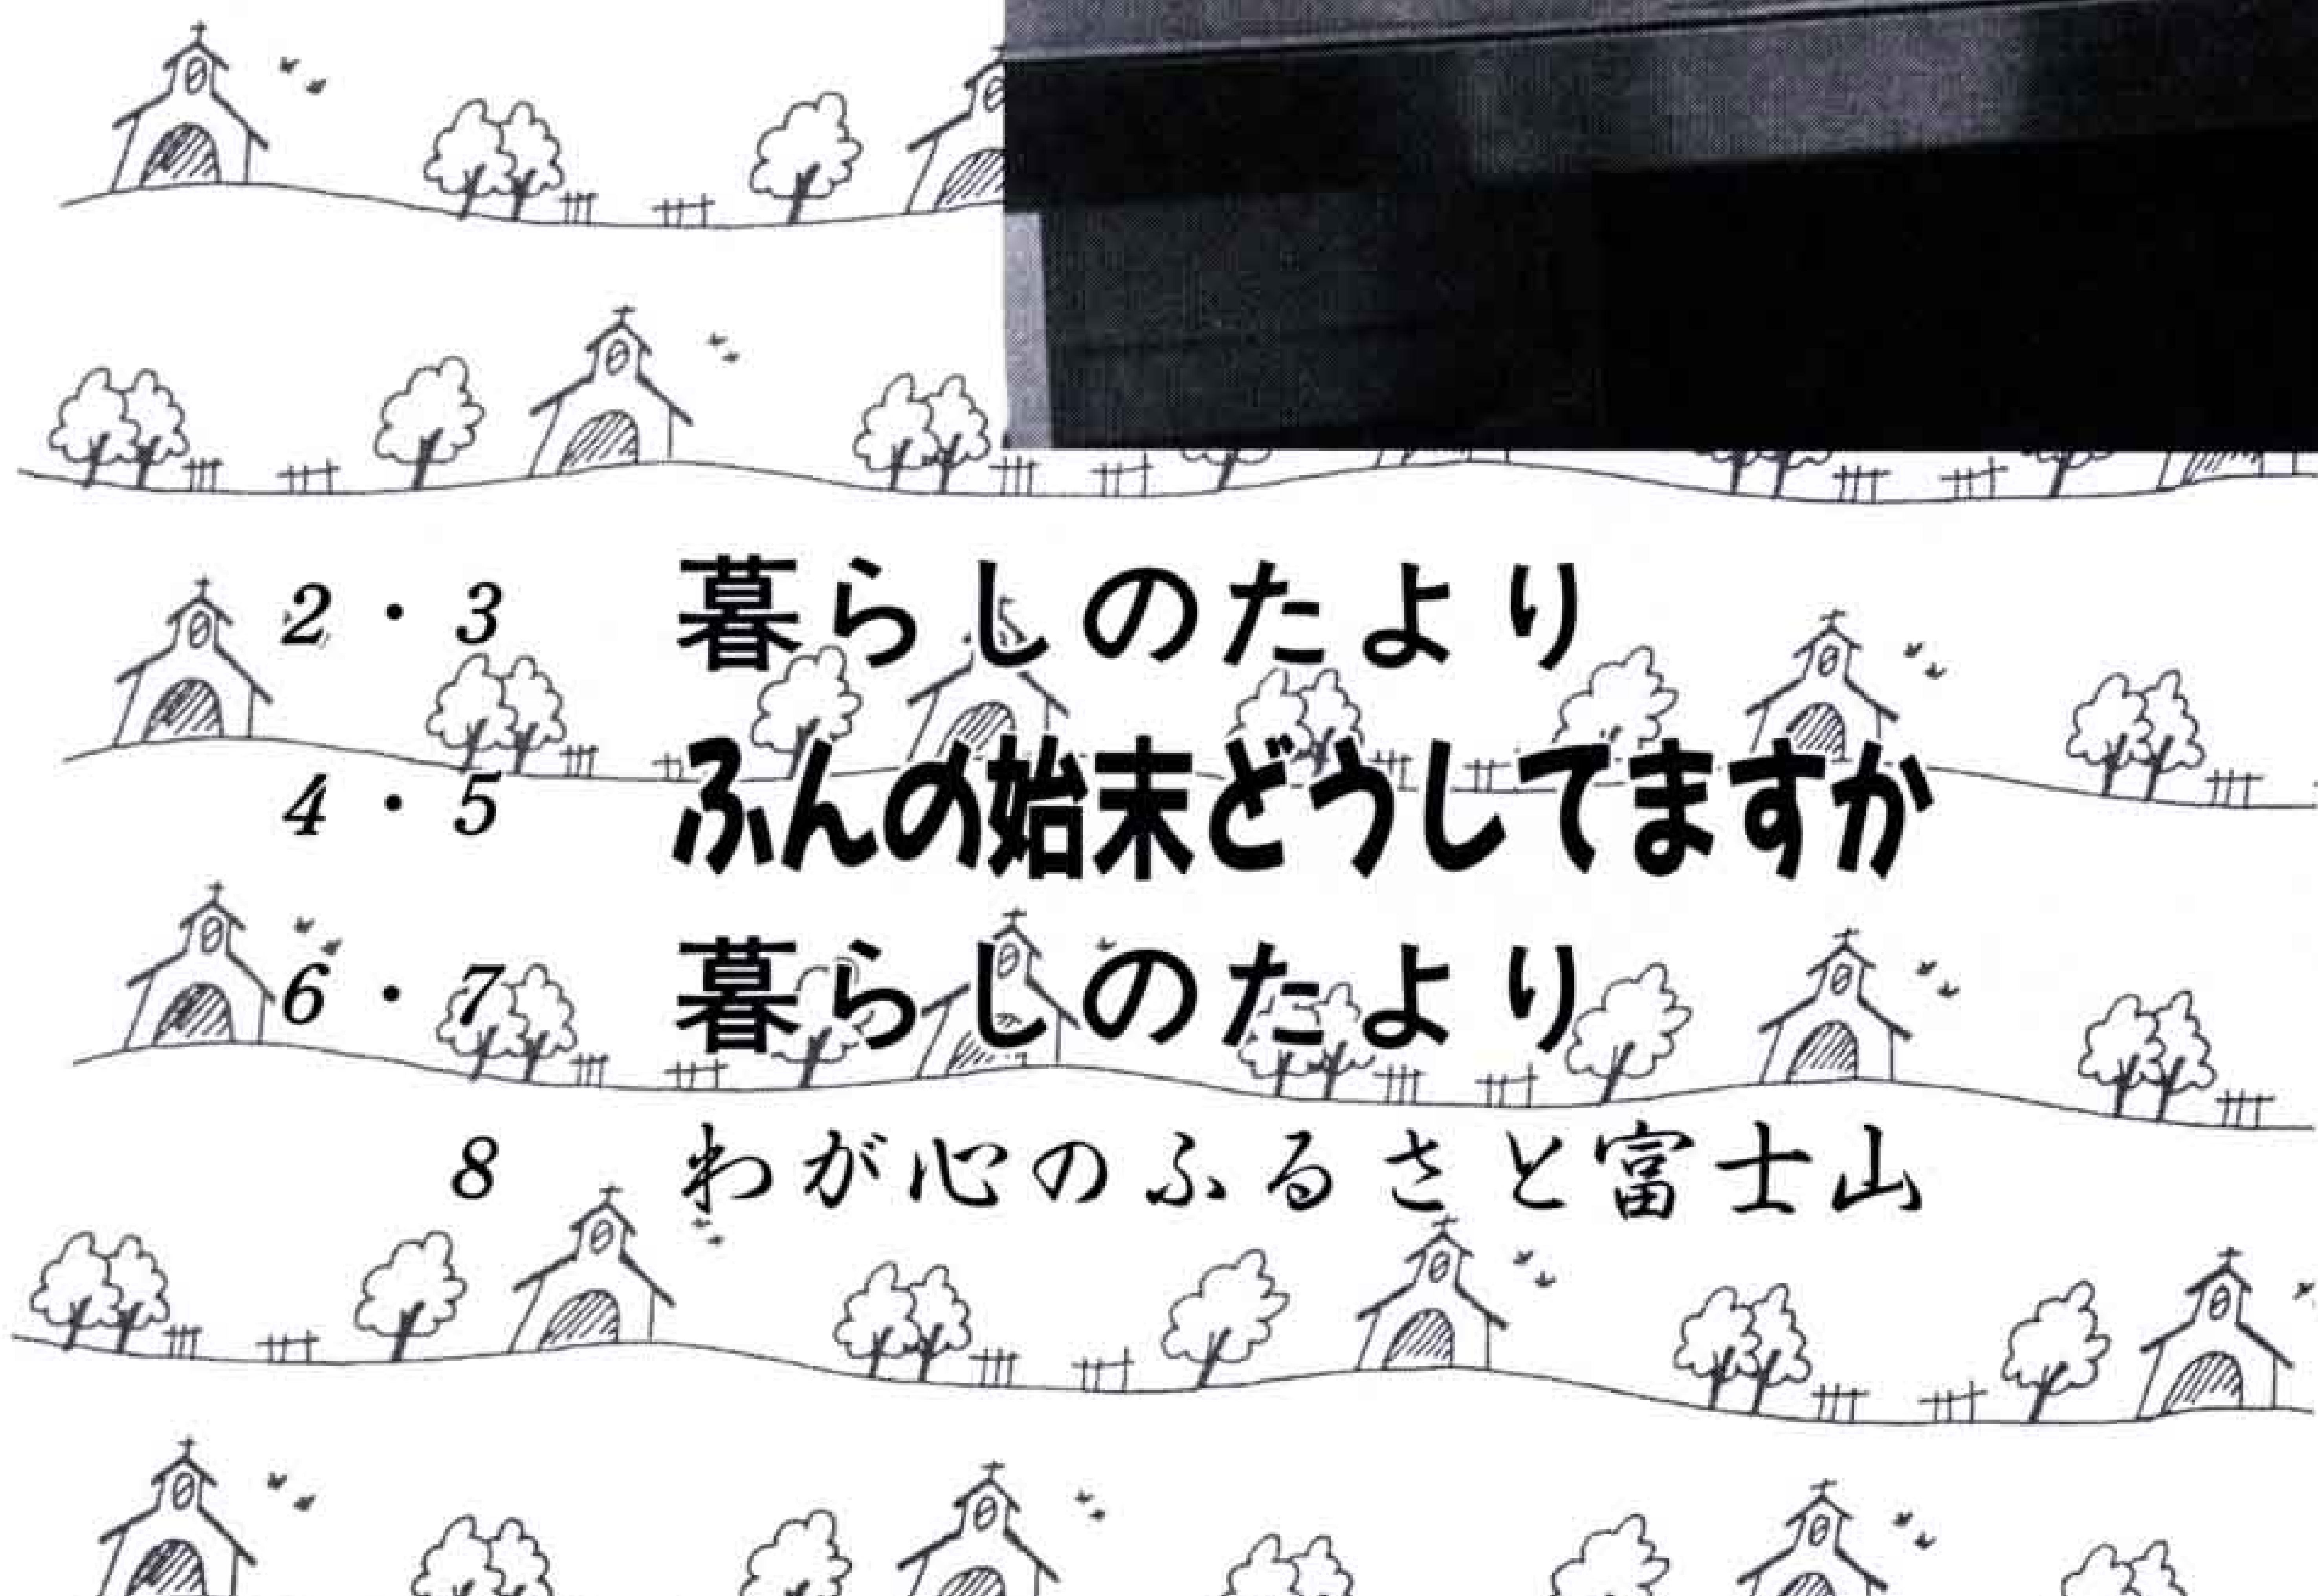 2・3 暮らしのたより
4・5 ふんの始末どうしてますか
6・7 暮らしのたより
8 わが心のふるさと富士山